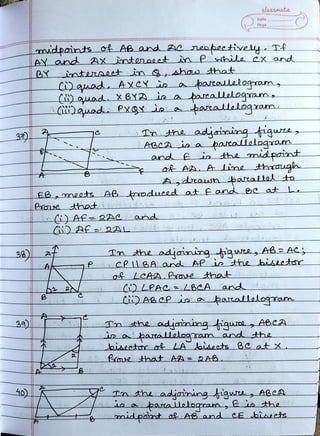 classmate
Date
Page
midpoints of AB and DC respectively. If
AY and DX intersect in P while CX and
BY intersect in Q, show that
(i) quad. AXCY is a parallelogram,
(ii) quad. XBYD is a parallelogram,
(iii) quad. PXQY is a parallelogram.
37) In the adjoining figure,
ABCD is a parallelogram
and E is the midpoint
of AD. A line through
D, drawn parallel to
EB, meets AB produced at F and BC at L.
Prove that
(i) AF = 2DC and
(ii) DF = 2DL
38) In the adjoining figure, AB = AC;
CP || BA and AP is the bisector
of ∠CAD. Prove that
(i) ∠PAC = ∠BCA and
(ii) ABCP is a parallelogram
39) In the adjoining figure, ABCD
is a parallelogram and the
bisector of ∠A bisects BC at X.
Prove that AD = 2AB.
40) In the adjoining figure, ABCD
is a parallelogram, E is the
midpoint of AB and CE bisects